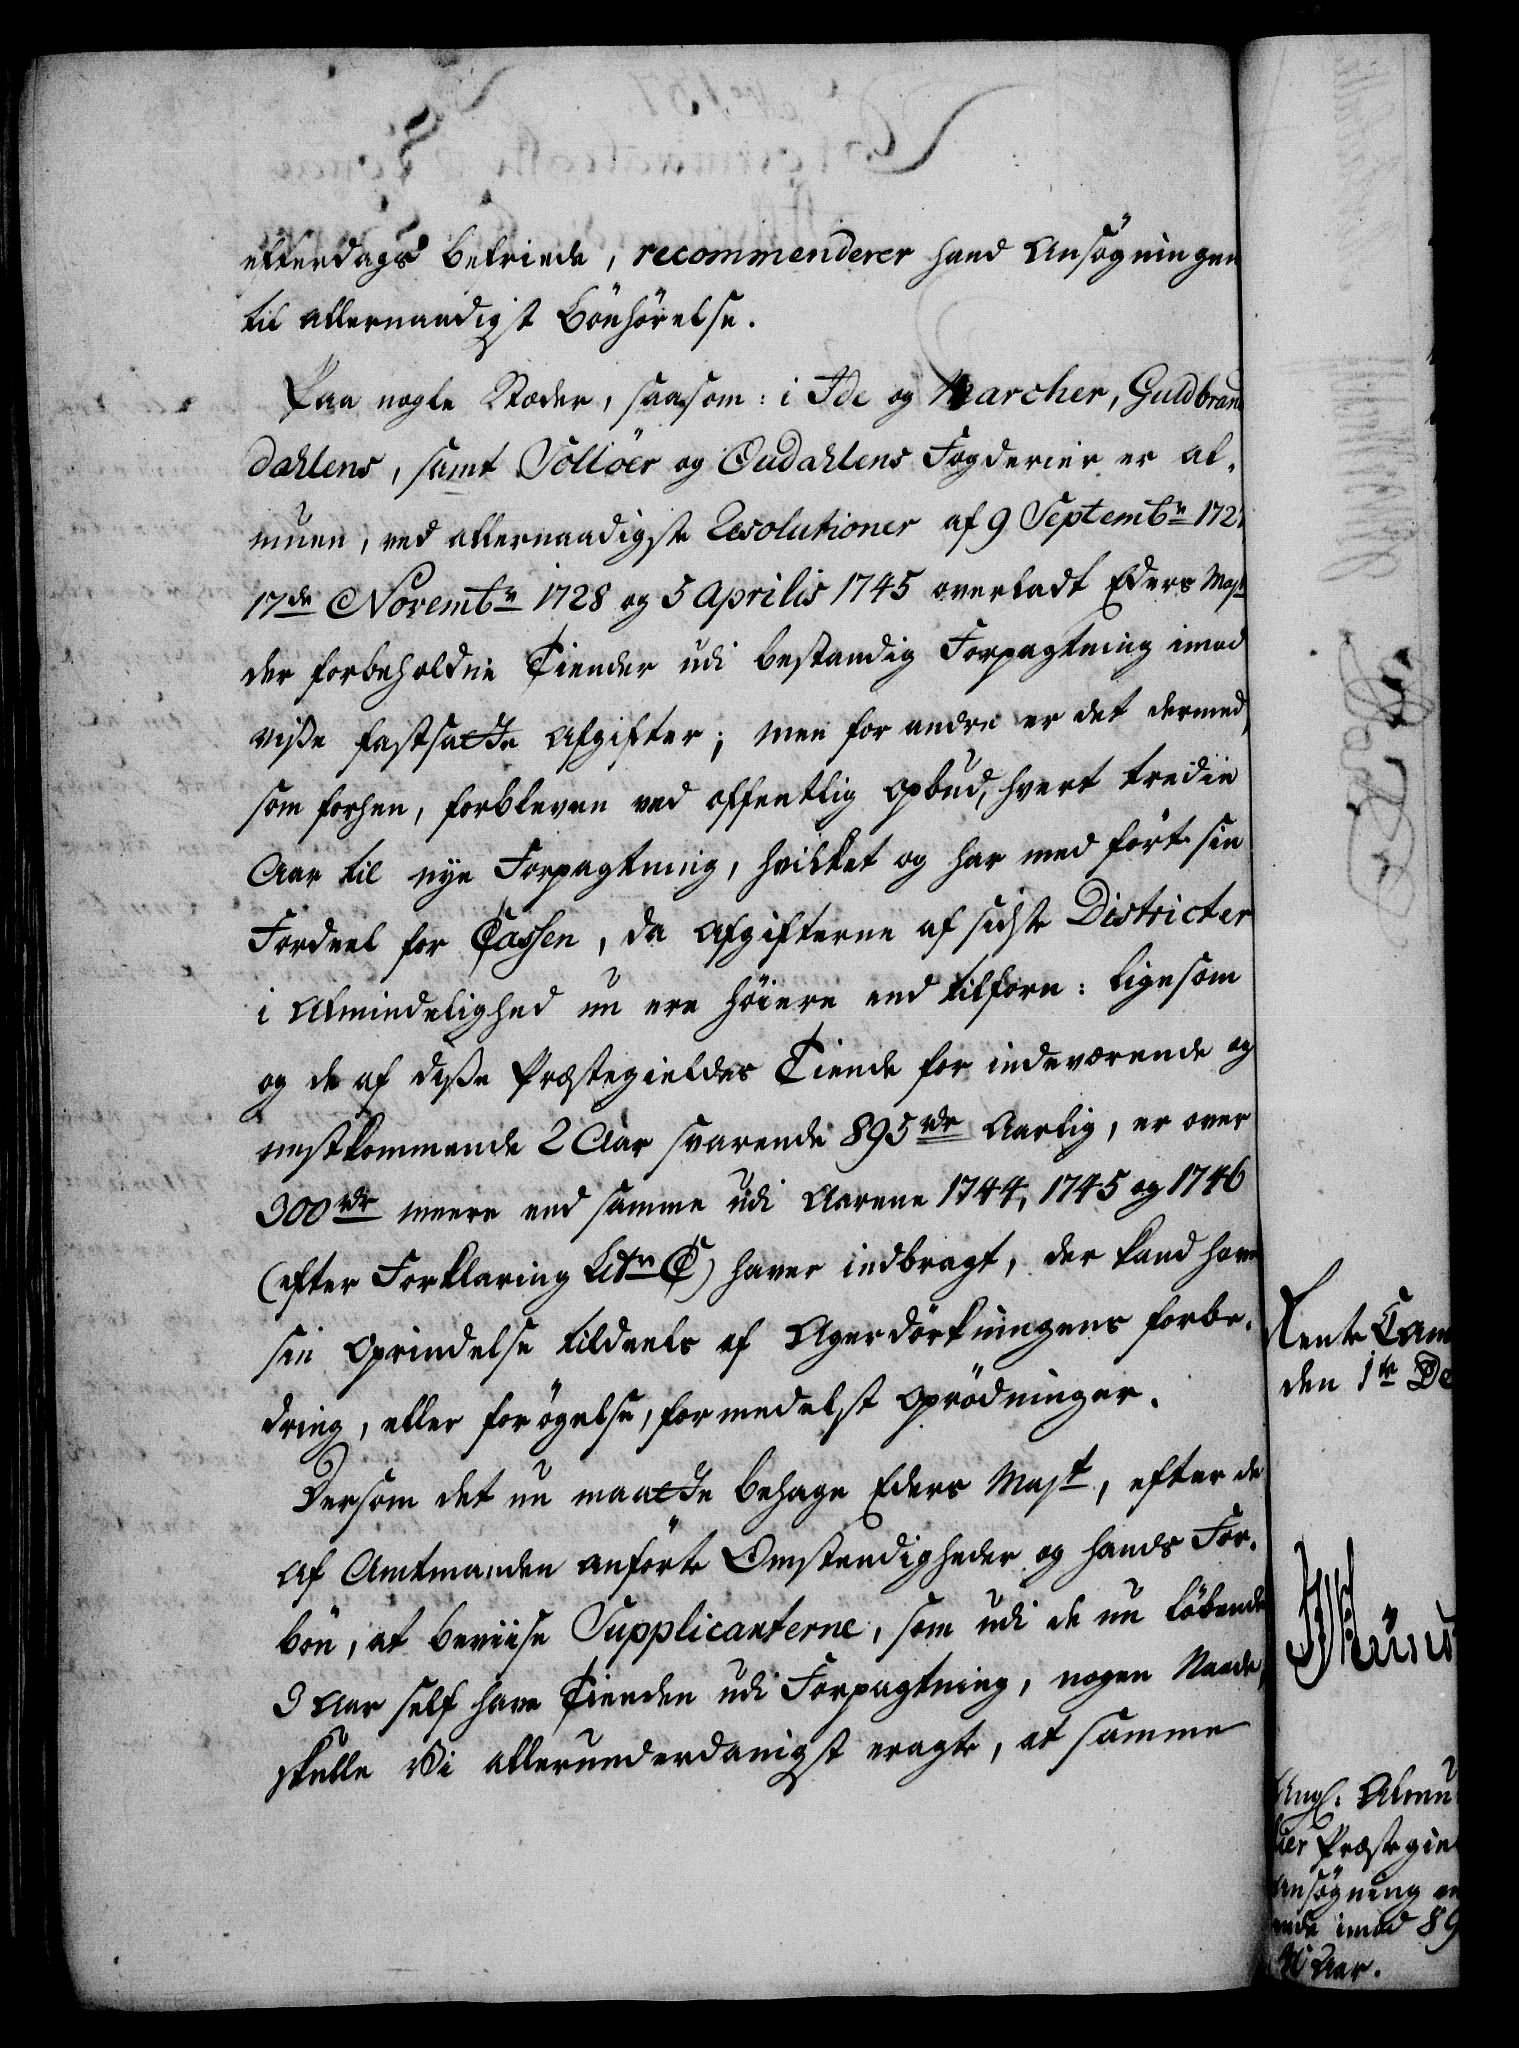 efterdags befriede, recommenderer hand Ansøgningen
til allernaadigst Bönhörelse.
Paa nogle Stæder, saasom: i Ide og Marcher, Guldbrand
dahlens, samt Solløer og Oudahlens Fogderier er al-
muen, ved allernaadigste Resolutioner af 9 Septembr 172
17de Novembr 1728 og 5 Aprilis 1745 overladt Eders Mayt
der forbeholdne Tiender udi bestandig Forpagtning imod
visse fastsatte Afgifter; men for andre er det dermed,
som forhen, forbleven ved offentlig Opbud, hvert tredie
Aar til nye Forpagtning, hvilket og har med ført sin
Fordeel for Cassen, da Afgifterne af sidste Districter
i Almindelighed nu ere høiere end tilforn: ligesom
og de af disse Præstegieldes Tiende for indeværende og
nestkommende 2 Aar svarende 895 rdr Aarlig, er over
300 rdr meere end samme udi Aarene 1744, 1745 og 1746
(efter Forklaring Litr C) haver indbragt, der kand have
sin Oprindelse tildeels af Agerdörkningens forbe-
dring, eller forøgelse, formedelst Oprødninger.
Dersom det nu maatte behage Eders Mayt, efter de
af Amtmanden anförte Omstendigheder og hands For-
bön, at beviise Supplicanterne, som udi de nu løbende
3 Aar self have Tienden udi Forpagtning, nogen Naade,
skulle Vi allerunderdanigst eragte, at samme
Rente Cam
den 1te De
Ang. Almu
Præstegie
Ansøgning
imod 89
Aar.